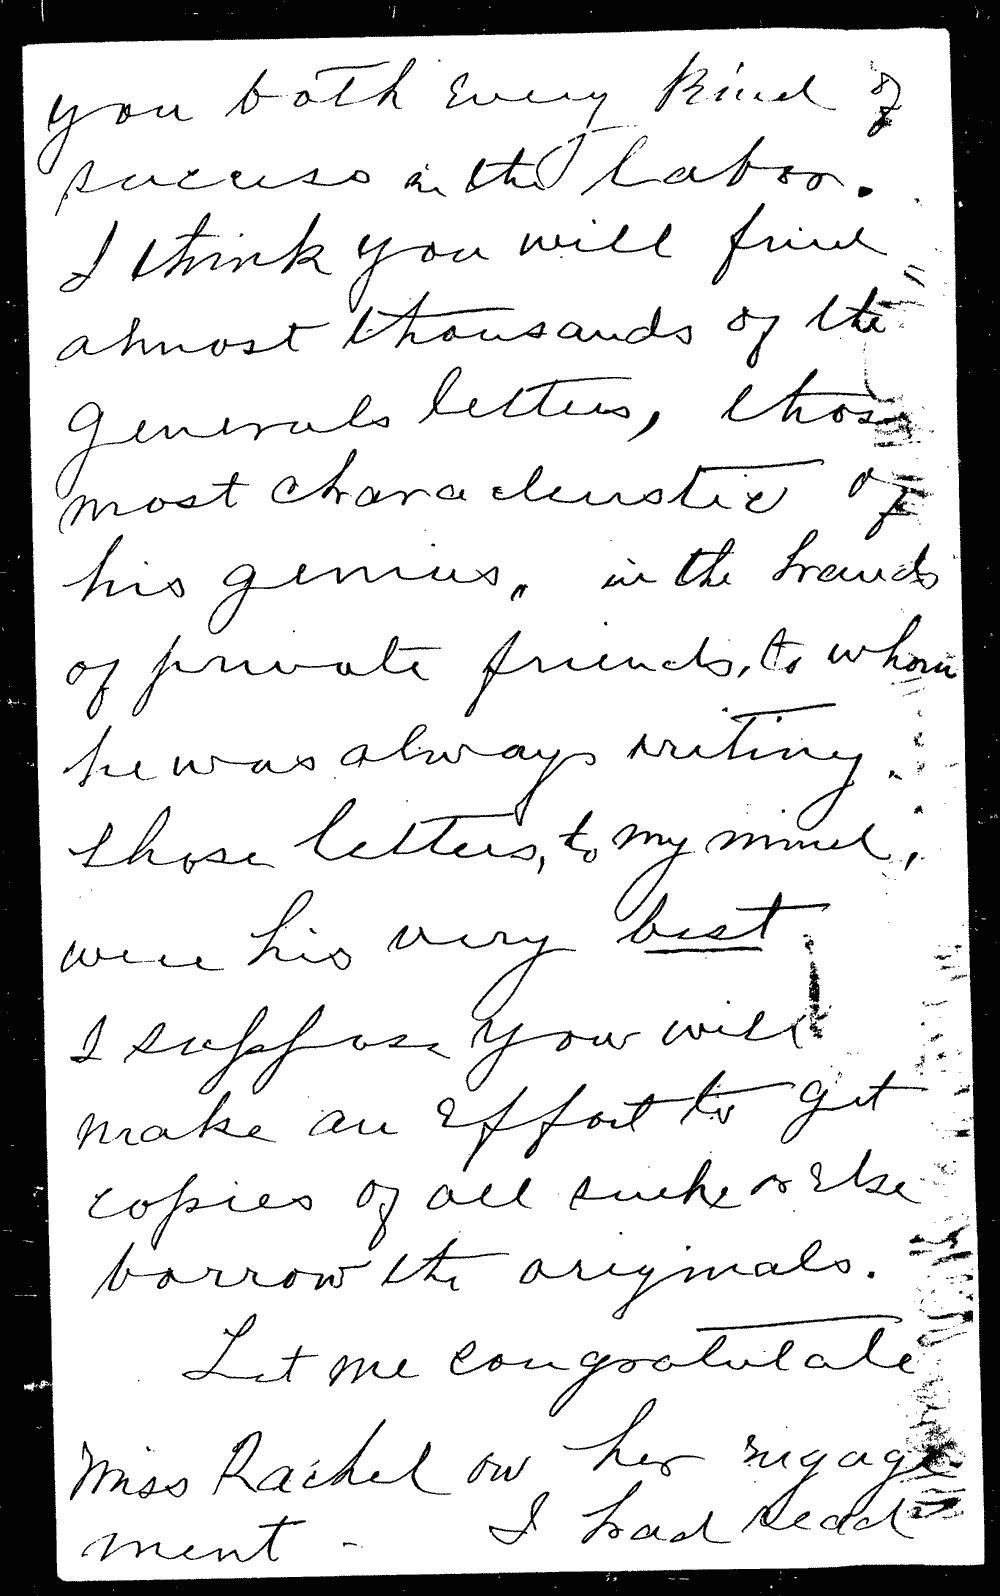 you both every kind of
success in the labor.
I think you will find
almost thousands of the
Generals letters, those
most characteristic of
his genius, in the hands
of private friends, to whom
he was always writing.
Those letters, to my mind,
were his very best
I suppose you will
make an effort to get
copies of all such or else
borrow the originals.
Let me congratulate
Miss Rachel on her engage
ment - I had read